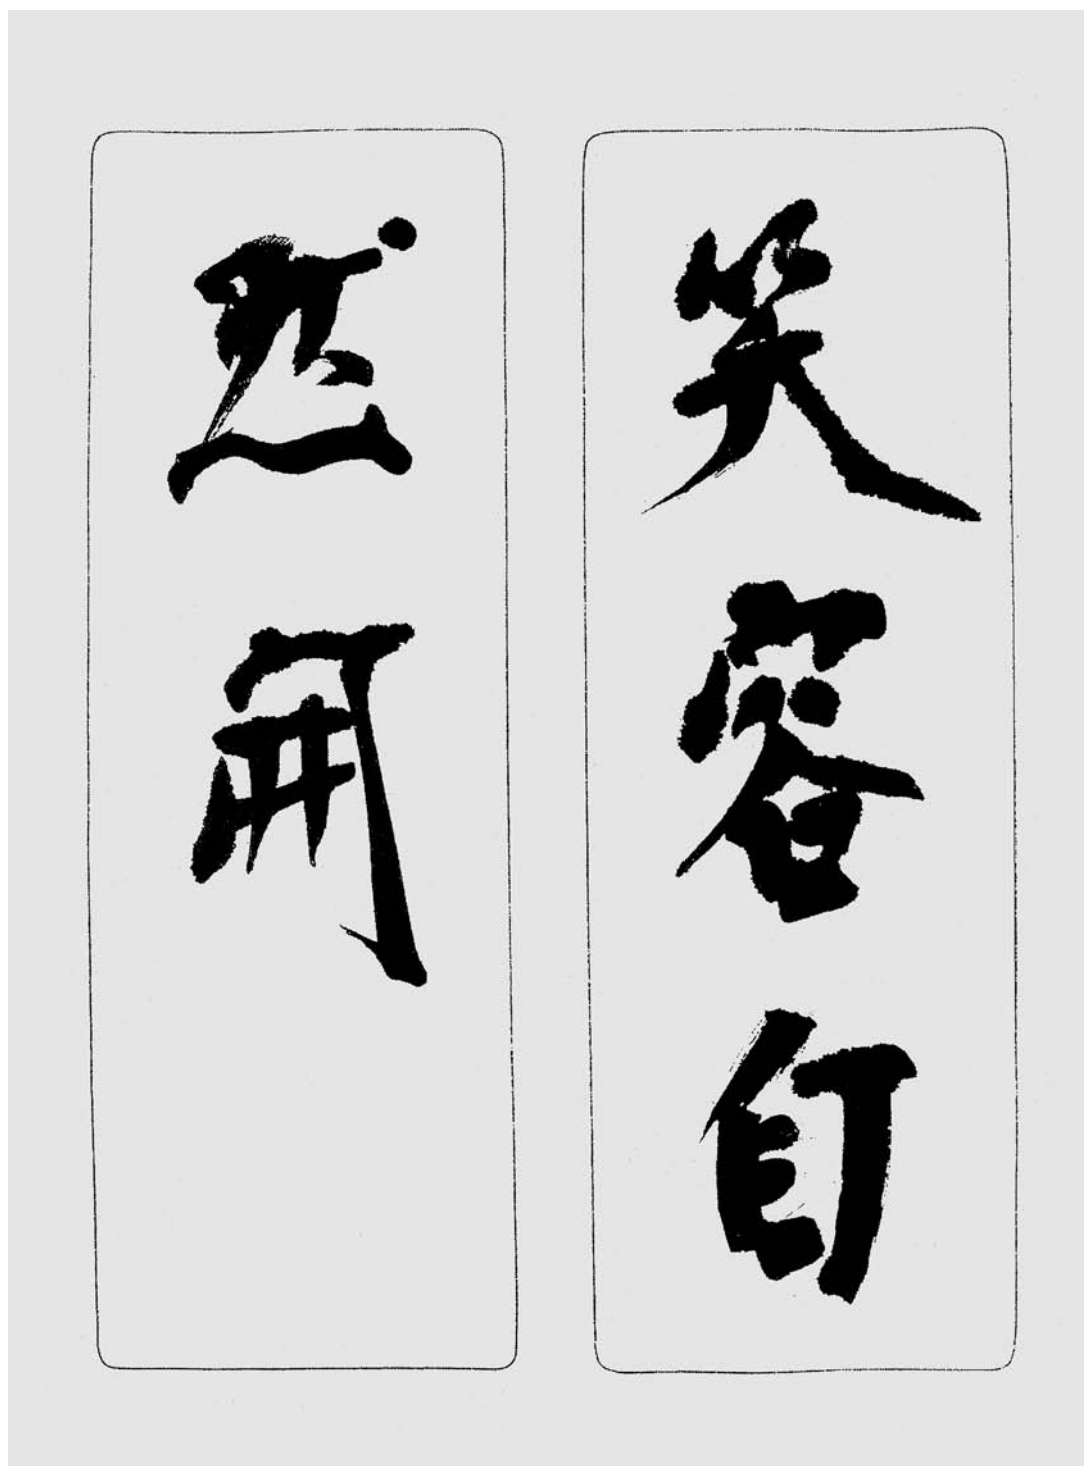 笑容自
然開